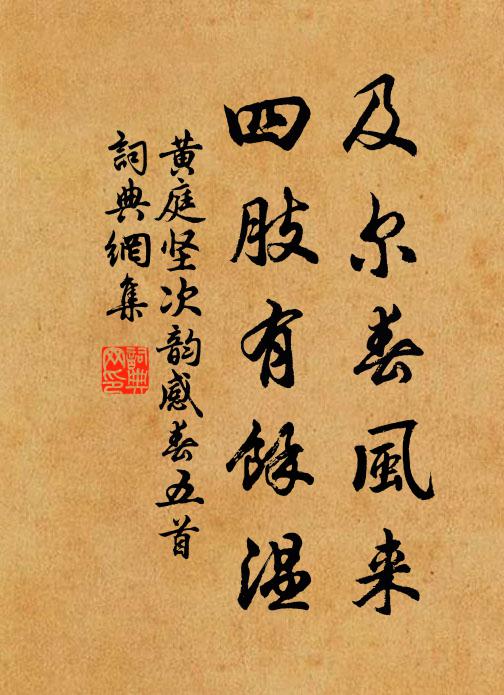 及尔春風来
四肢有餘温
黄庭坚次韵感春五首
詞典網集
詞典网印